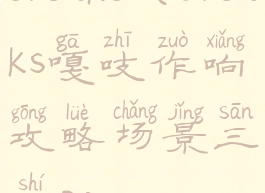 gā zhī zuò xiǎng
KS嘎吱作响
gōng lüè chǎng jǐng sān
攻略场景三
shí